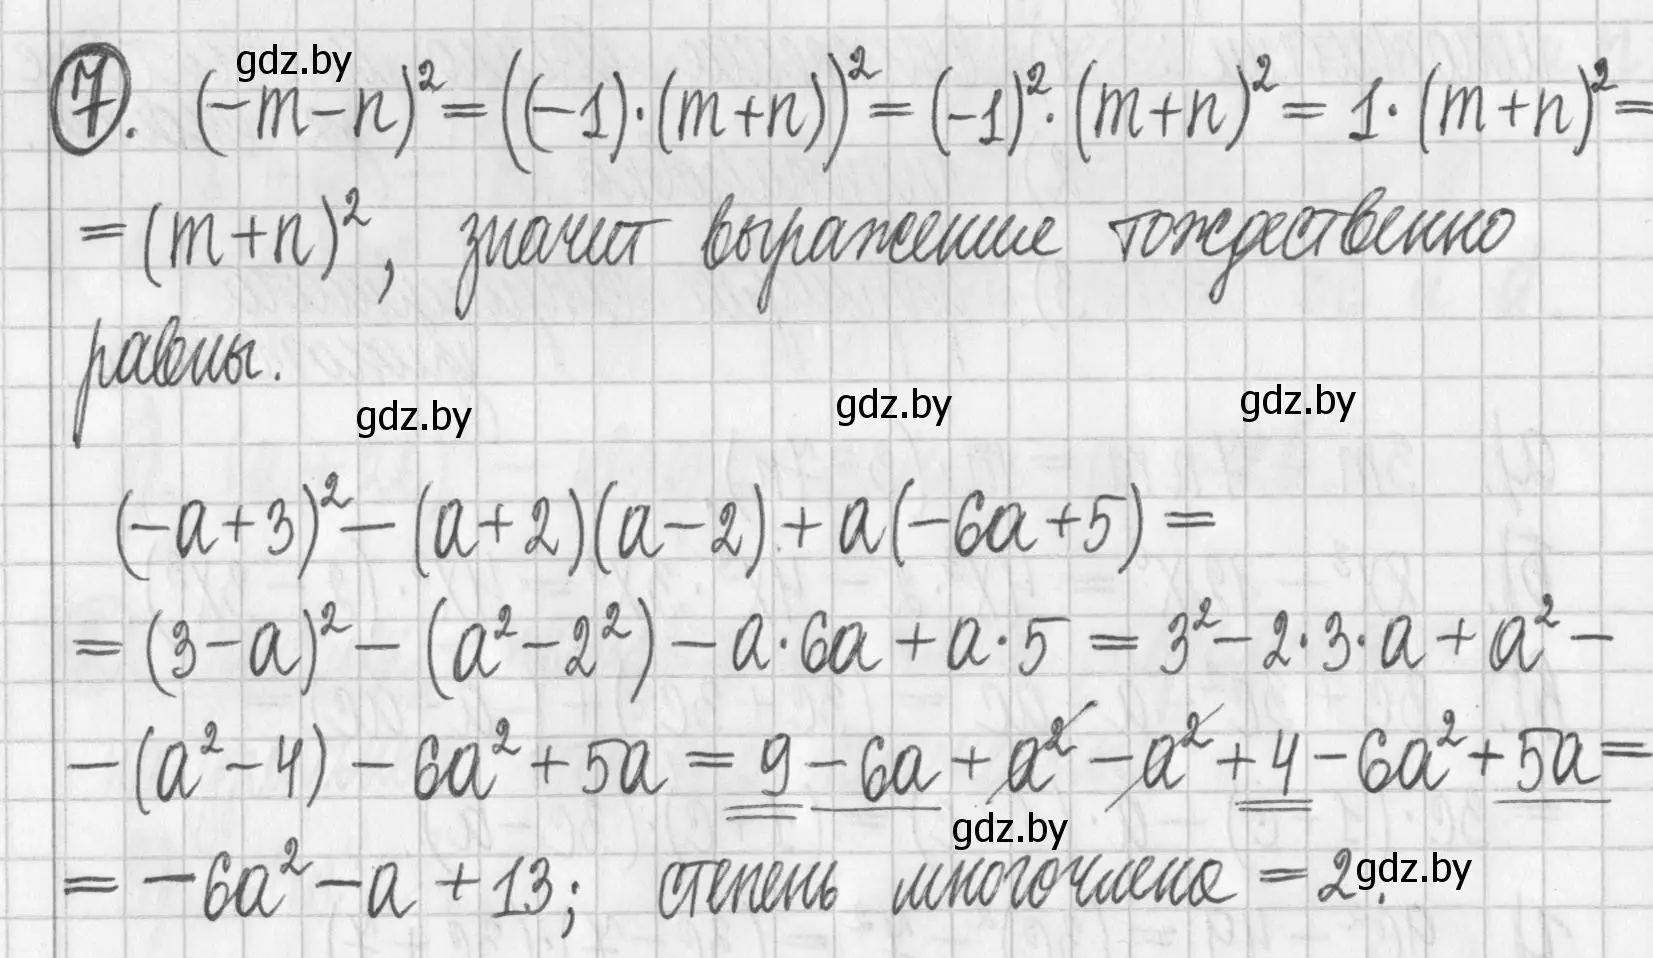 gdz.by
7. (-m-n)² = ((-1)·(m+n))² = (-1)²·(m+n)² = 1·(m+n)² =
= (m+n)², значит выражение тождественно
равны.
gdz.by gdz.by gdz.by
(-a+3)² - (a+2)(a-2) + a(-6a+5) =
= (3-a)² - (a²-2²) - a·6a + a·5 = 3² - 2·3·a + a² -
- (a²-4) - 6a² + 5a = 9 - 6a + a² - a² + 4 - 6a² + 5a =
gdz.by
= -6a² - a + 13; степень многочлена = 2.
gdz.by